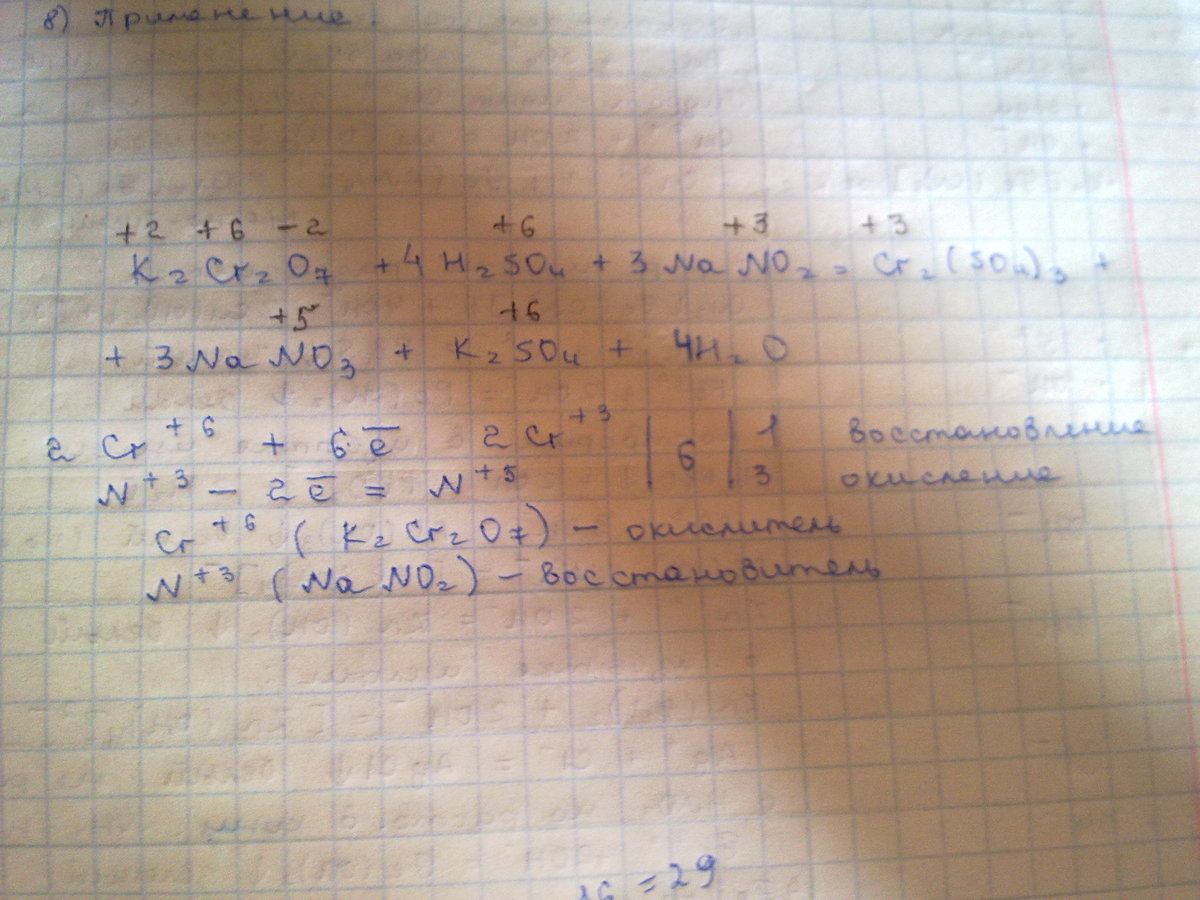 8) Применение.
+2 +6 -2 +6 +3 +3
K2Cr2O7 + 4H2SO4 + 3NaNO2 = Cr2(SO4)3 +
+5 +6
+ 3NaNO3 + K2SO4 + 4H2O
2Cr+6 + 6ē 2Cr+3 | 6 | 1 восстановление
N+3 - 2ē = N+5 3 окисление
Cr+6 (K2Cr2O7) - окислитель
N+3 (NaNO2) - восстановитель
= 29